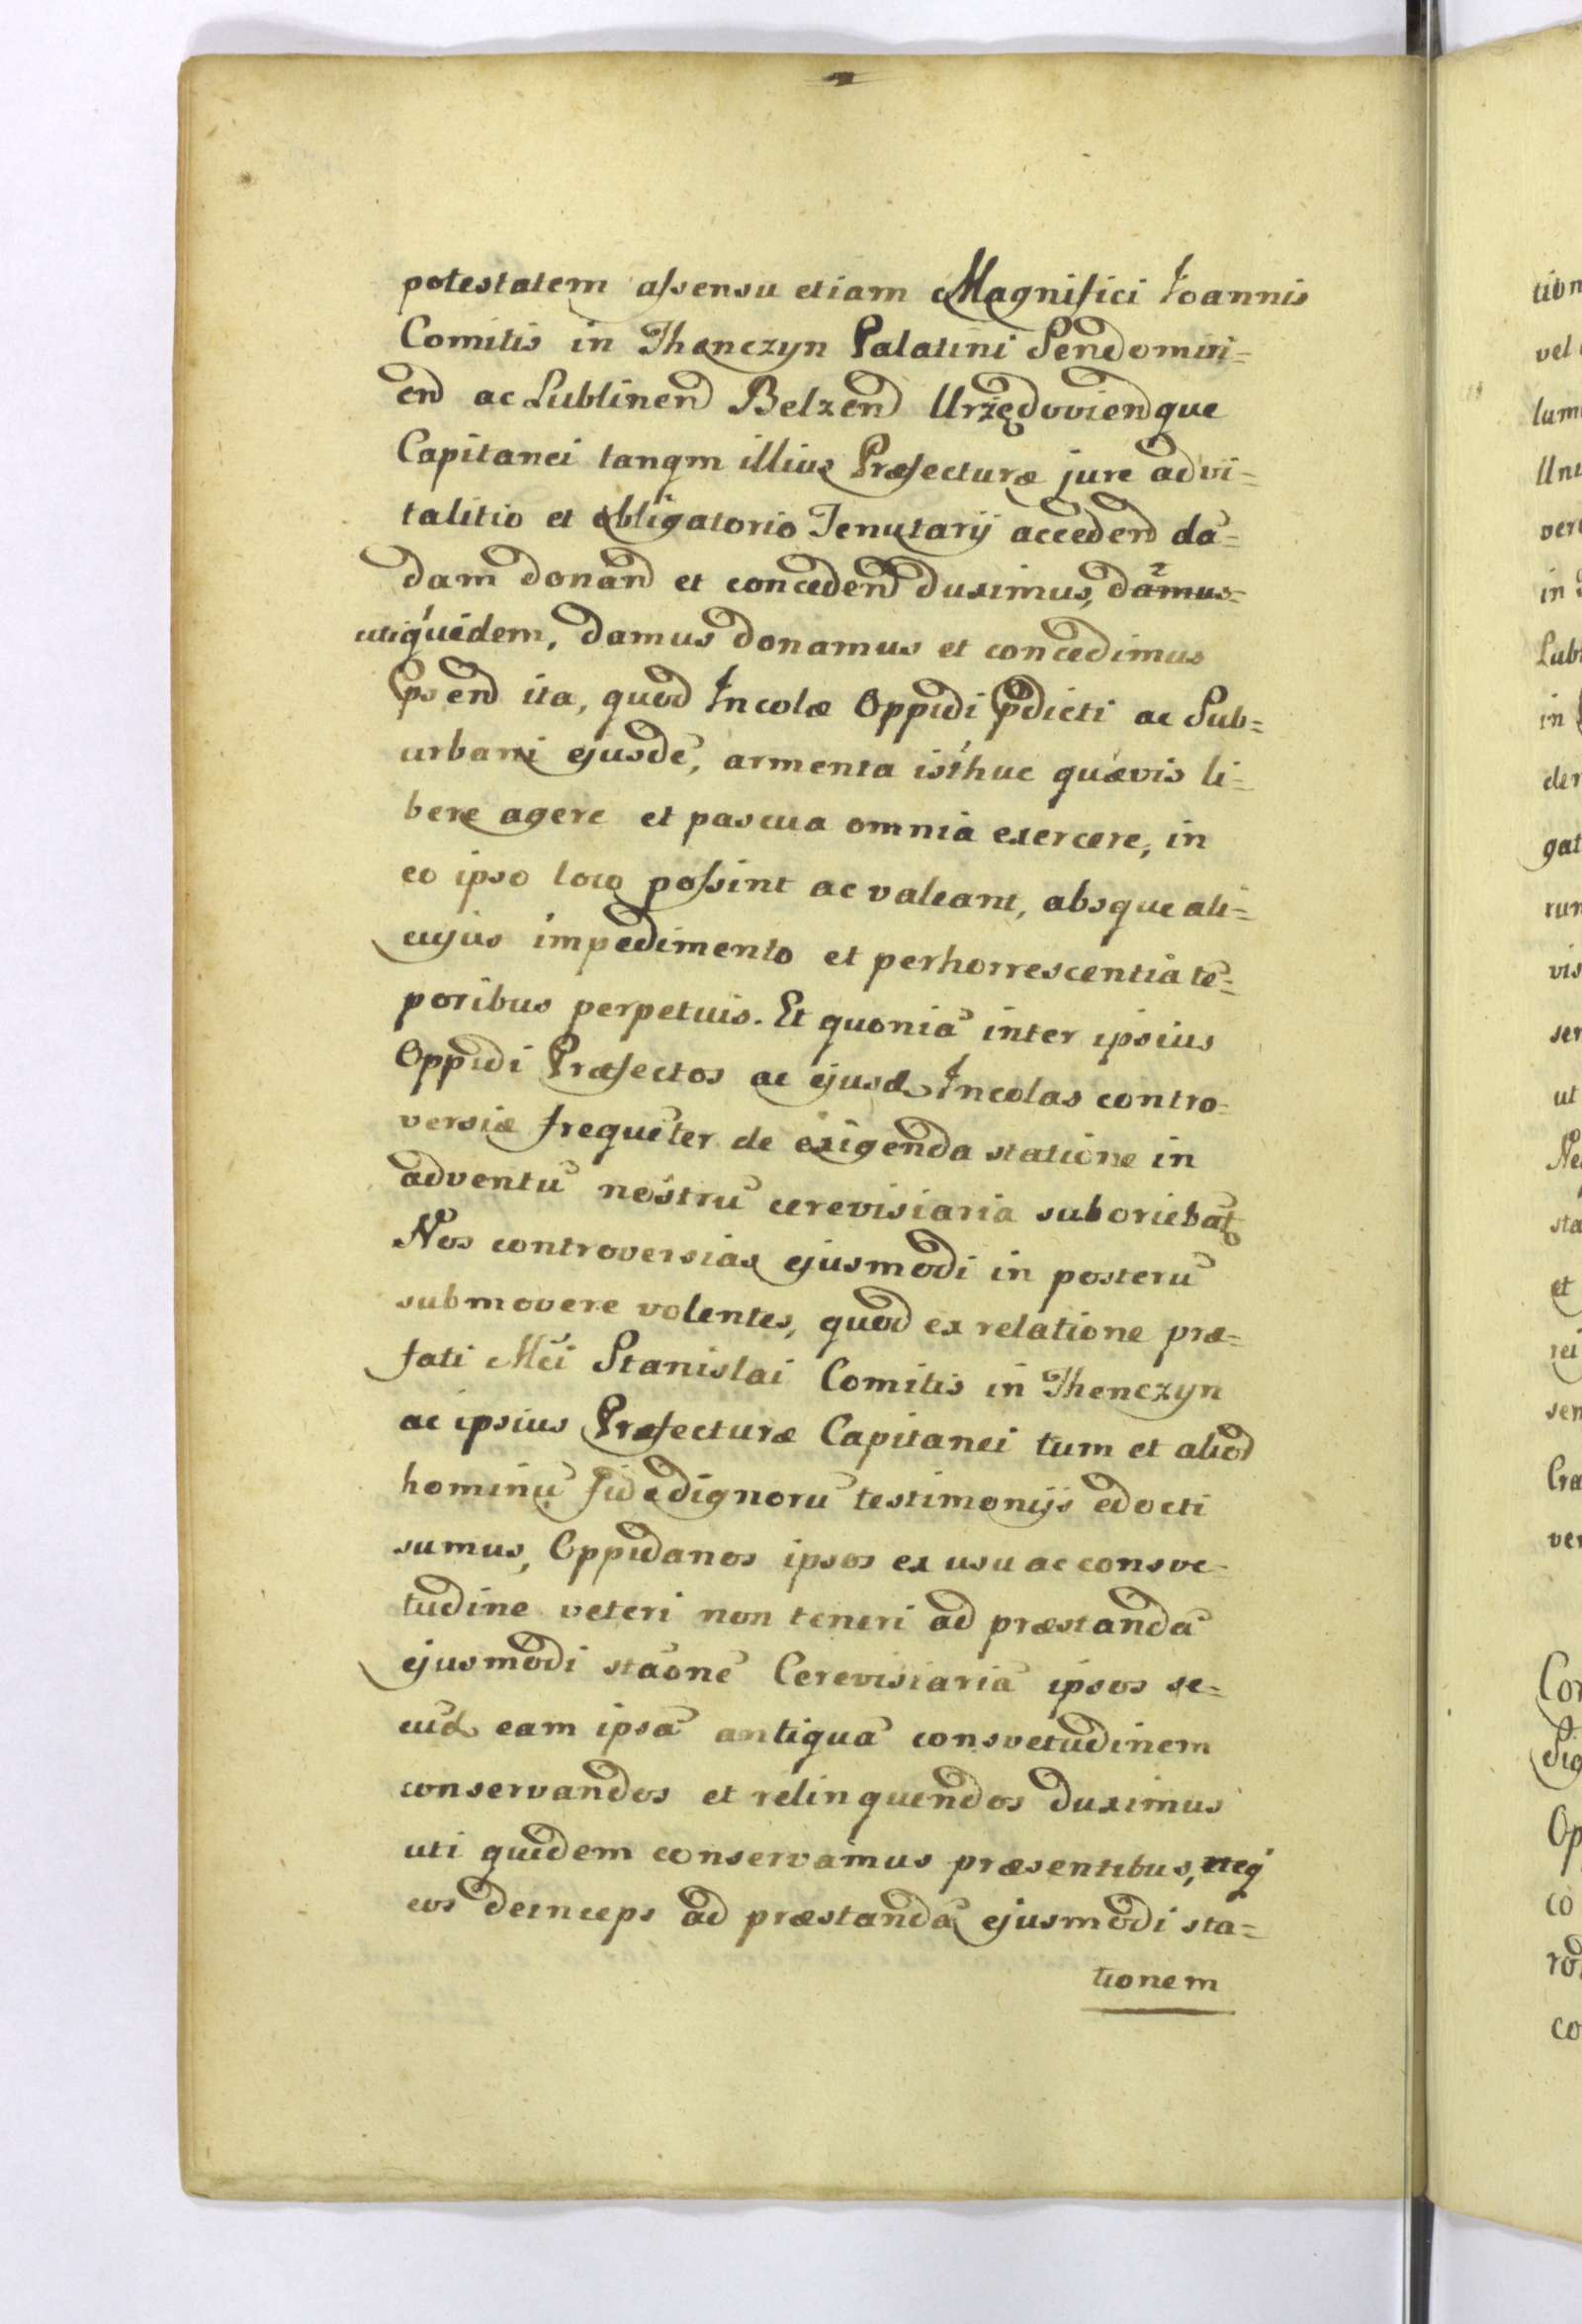 potestatem assensu etiam Magnifici Joannis
Comitis in Thenczyn Palatini Sendomiri=
end ac Lublinend Belzend Urzędoviendque
Capitanei tanqm illius Præfecturæ jure advi=
talitio et obligatorio Tenutarij accedend dā=
dam donand et concedend duximus, dāmus=
uti quidem, damus donamus et concedimus
psend ita, quod Incolæ Oppidi pdicti ac Sub=
urbani ejusdē, armenta isthuc quævis li=
bere agere et pascua omnia exercere, in
eo ipso loco possint ac valeant, absque ali=
cujus impedimento et perhorrescentia tē=
poribus perpetuis. Et quoniā inter ipsius
Oppidi Præfectos ac ejusd Incolas contro=
versiæ frequēter de exigenda statione in
adventū nostrū cerevisiaria suboriebat
Nos controversias ejusmodi in posterū
submovere volentes, quod ex relatione præ=
fati Mci Stanislai Comitis in Thenczyn
ac ipsius Præfecturæ Capitanei tum et aliod
hominū fidedignorū testimonijs edocti
sumus, Oppidanos ipsos ex usu ac consve=
tudine veteri non teneri ad præstandā
ejusmodi stāonē Cerevisiariā ipsos se=
cūd eam ipsā antiquā consvetudinem
conservandos et relinquendos duximus
uti quidem conservamus præsentibus, neq
eos deinceps ad præstandā ejusmodi sta=
tionem
tion
vel
lum
Unt
vert
in
Lub
in
der
gat
run
vis
ser
ut
Ne
sta
et
rei
sen
Cra
ver
Con
Sig
Op
co
rod
co